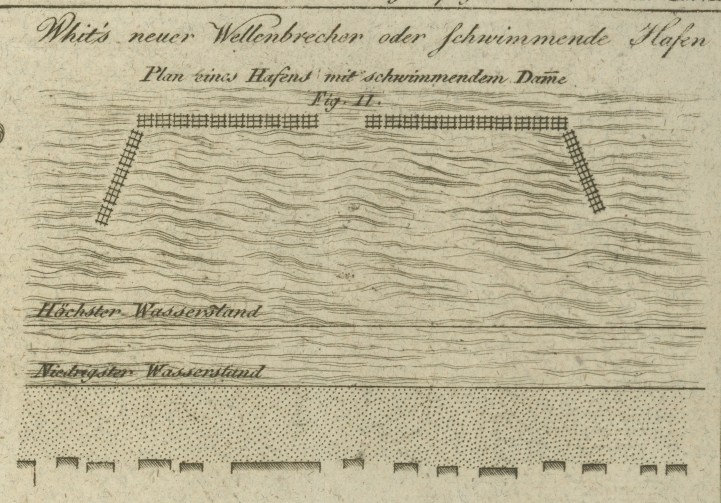 Whit's neuer Wellenbrecher oder schwimmende Hafen
Plan eines Hafens mit schwimmendem Dam̅e
Fig. II.
Höchster Wasserstand
Niedrigster Wasserstand